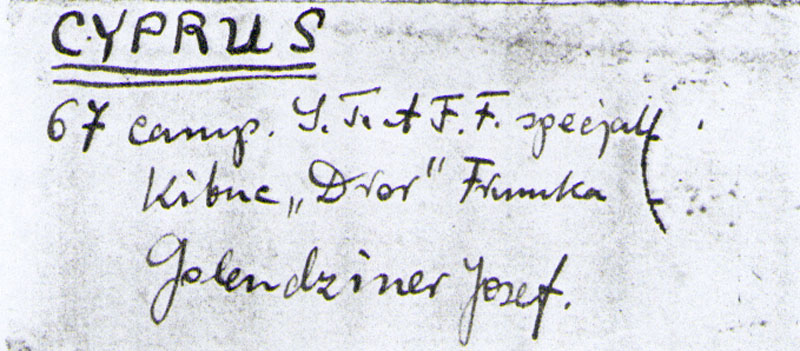 CYPRUS
67 camp. S. T. A F. F. specjall
Kibuc „Dror" Frumka
Golendziner Josef.